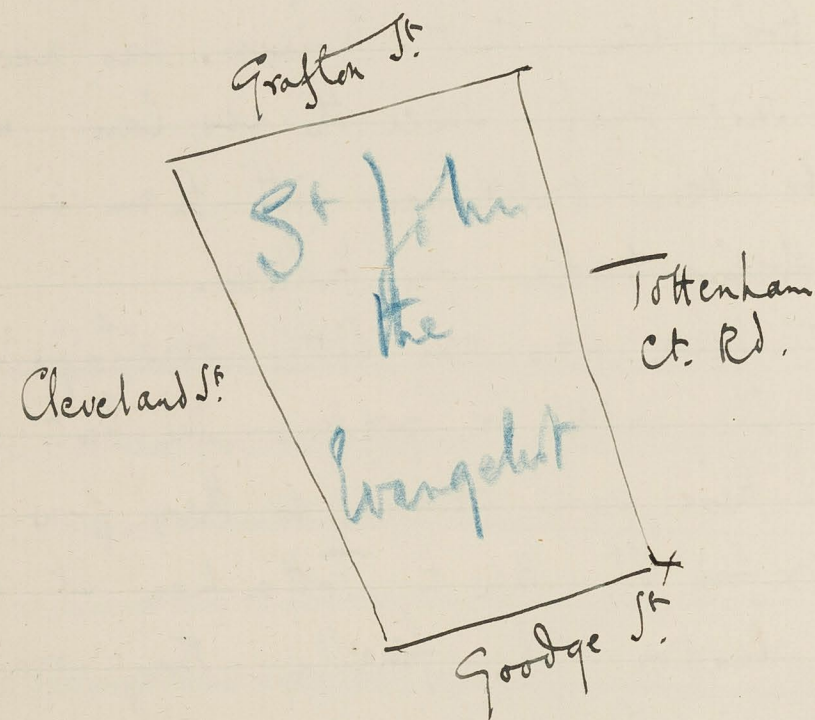 Grafton St.
St John
the
Evangelist
Tottenham
Ct. Rd.
Cleveland St.
Goodge St.